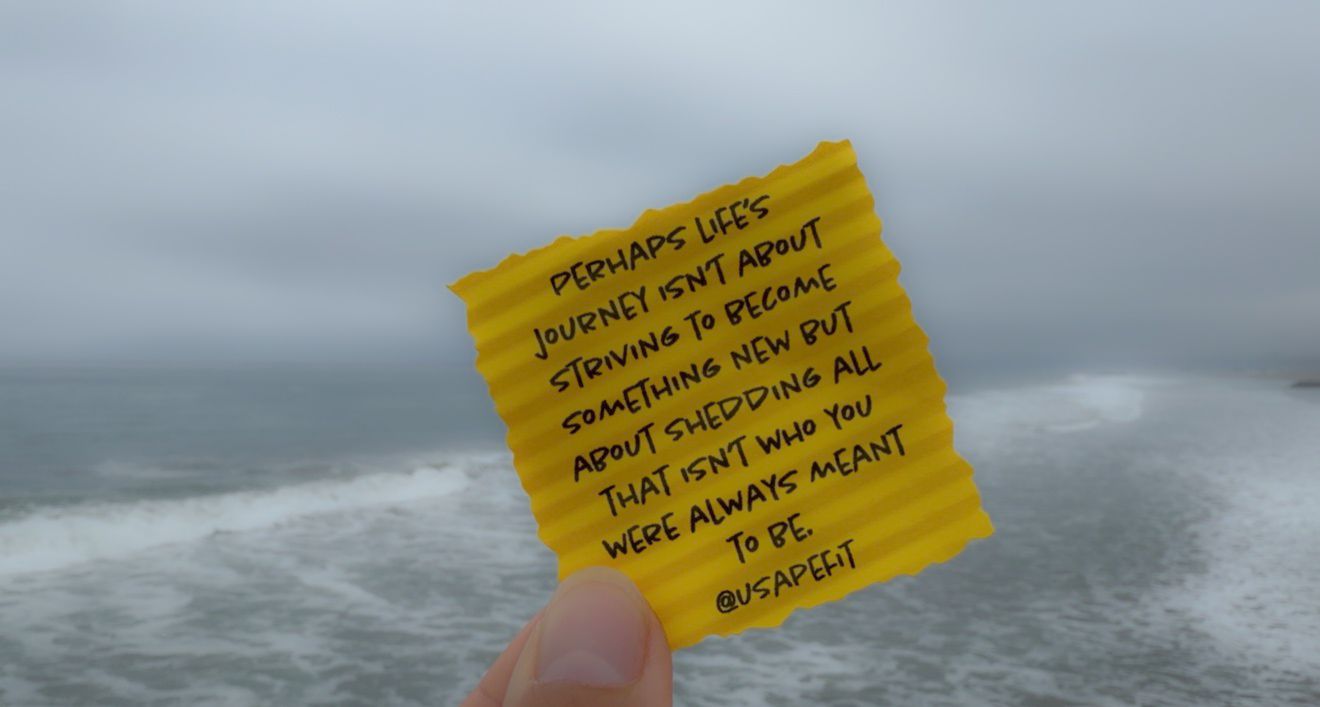 PERHAPS LIFE'S
JOURNEY ISN'T ABOUT
STRIVING TO BECOME
SOMETHING NEW BUT
ABOUT SHEDDING ALL
THAT ISN'T WHO YOU
WERE ALWAYS MEANT
TO BE.
@USAPEFIT